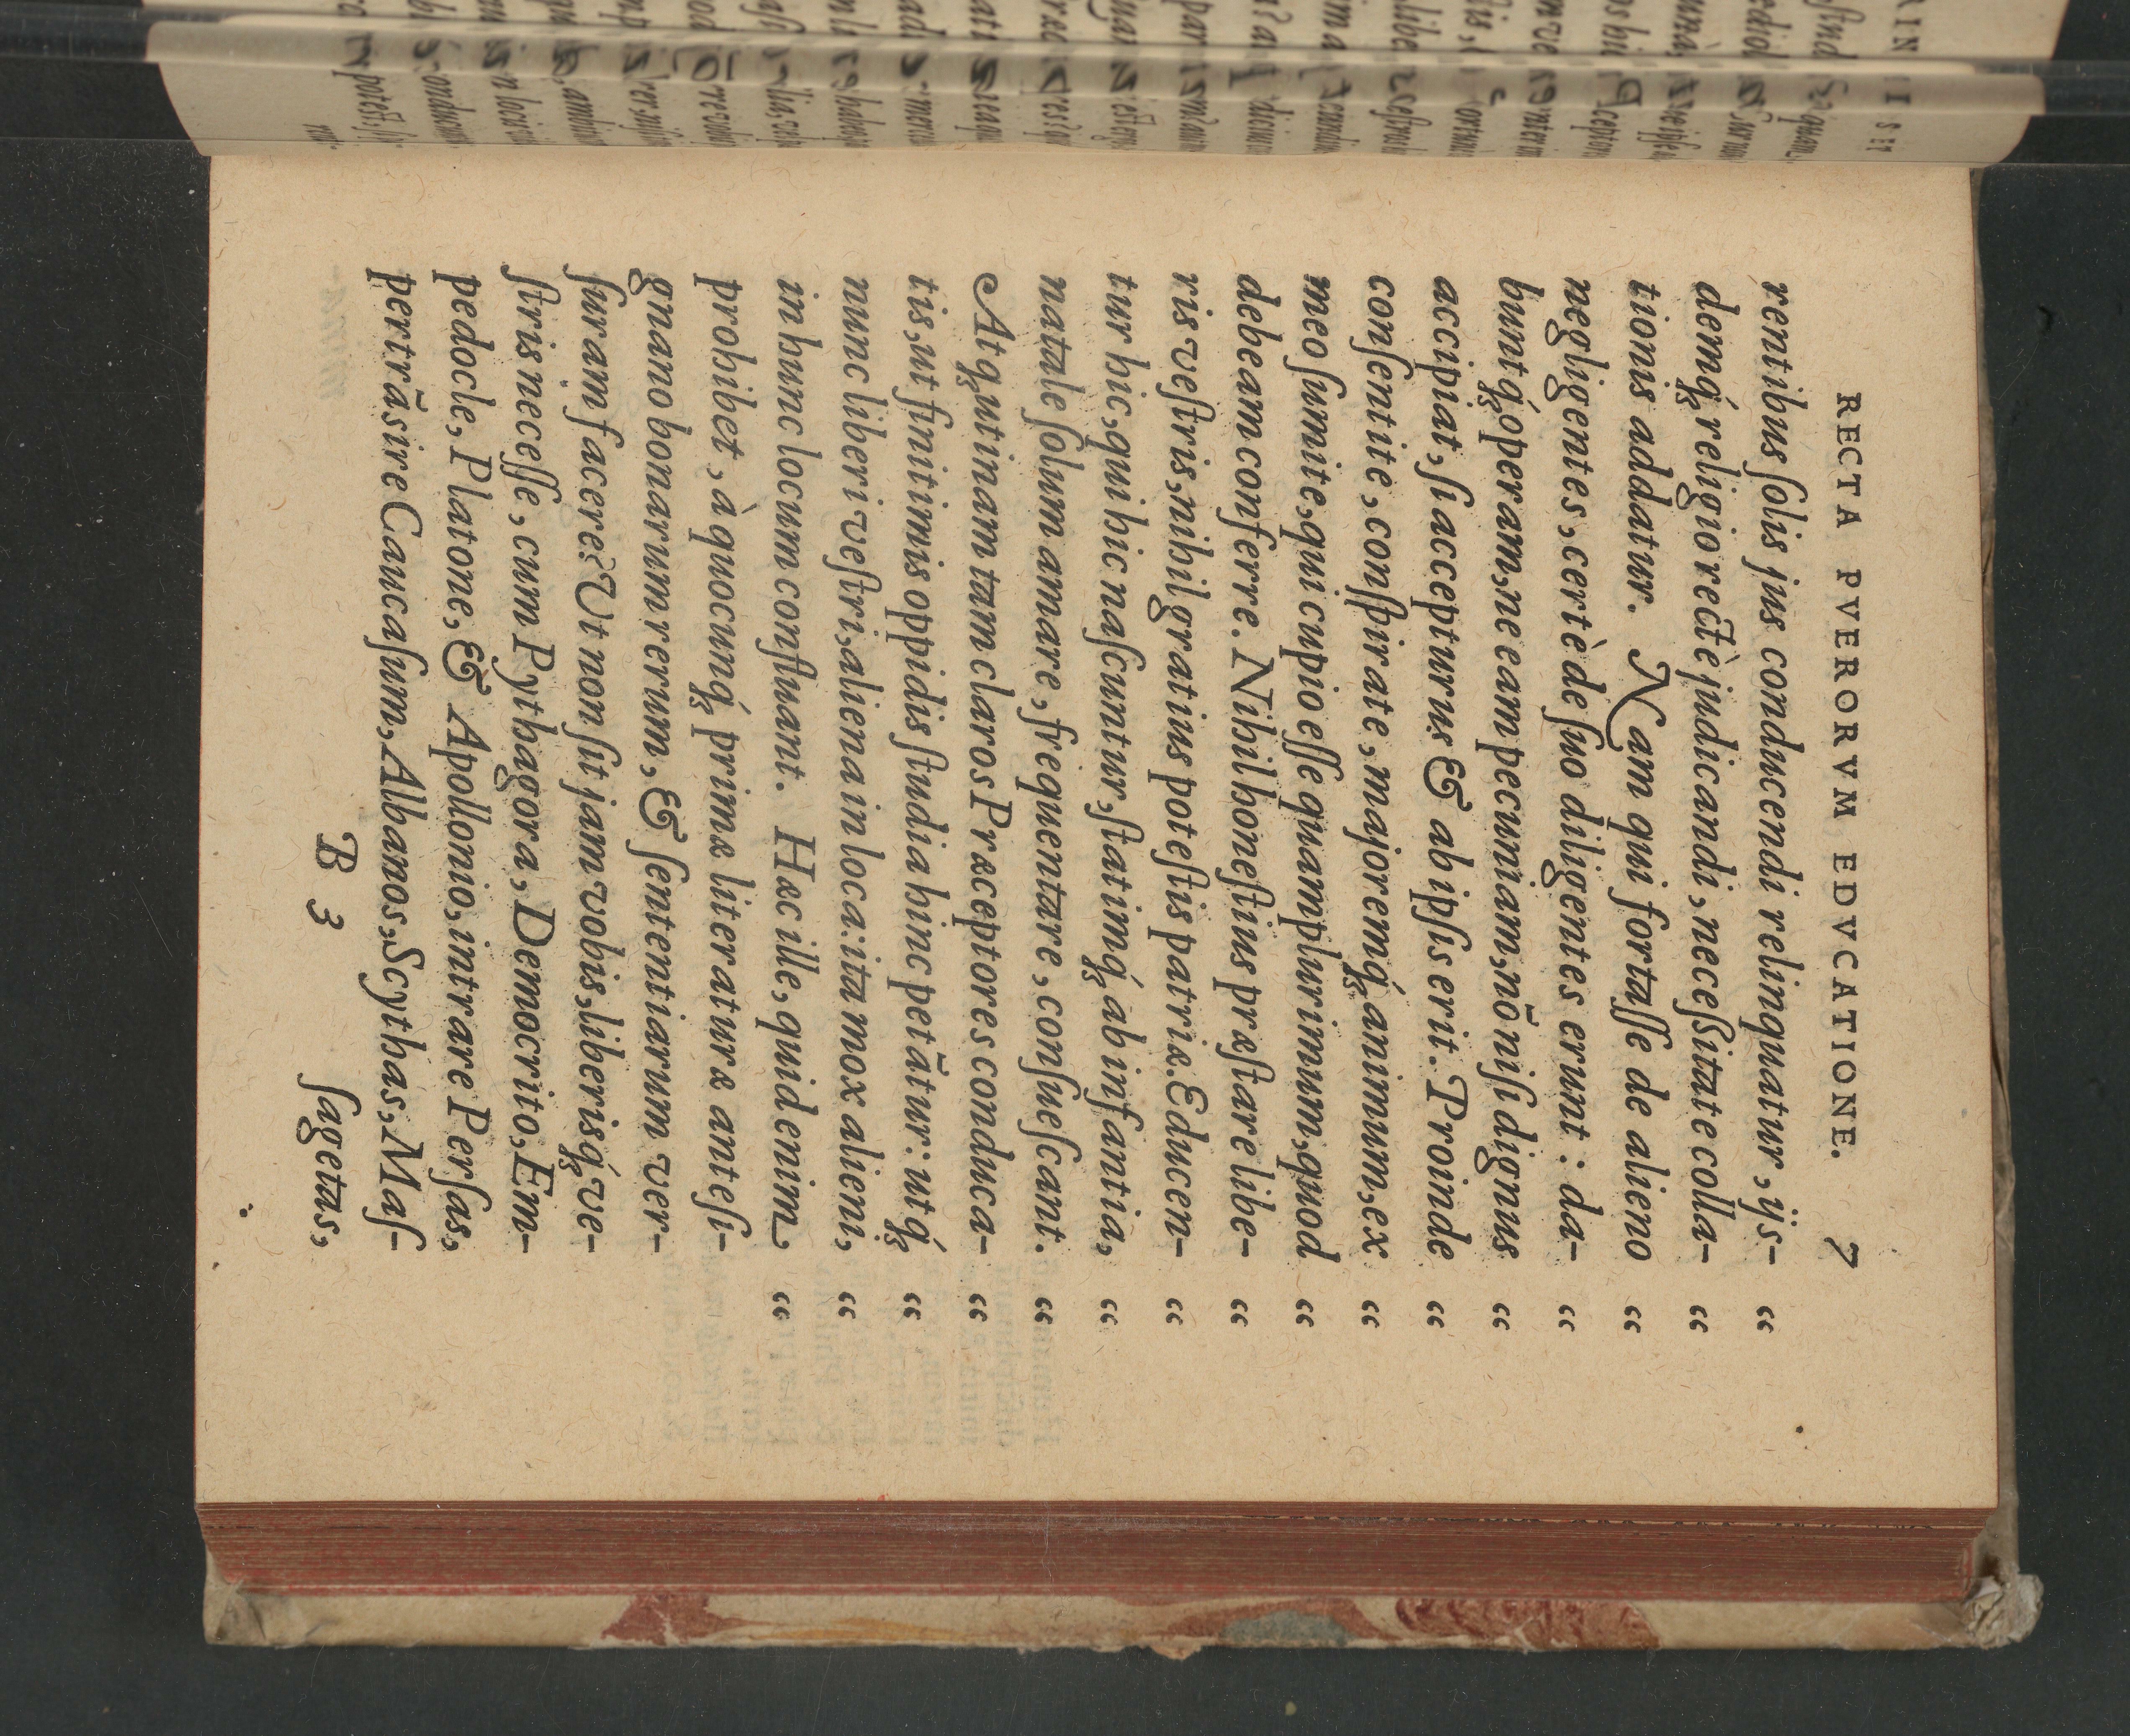 RECTA PVERORVM EDVCATIONE. 7
rentibus ſolis jus conducendi relinquatur, ijs- “
demq́; religio rectè judicandi, neceſſitate colla- “
tionis addatur. Nam qui fortaſſe de alieno “
negligentes, certè de ſuo diligentes erunt: da- “
buntq́; operam, ne eam pecuniam, nõ niſi dignus “
accipiat, ſi accepturus & ab ipſis erit. Proinde “
conſentite, conſpirate, majoremq́; animum, ex “
meo ſumite, qui cupio eſſe quamplurimum, quod “
debeam conferre. Nihil honeſtius præſtare libe- “
ris veſtris, nihil gratius poteſtis patriæ. Educen- “
tur hic, qui hic naſcuntur, ſtatimq́; ab infantia, “
natale ſolum amare, frequentare, conſueſcant. “
Atq; utinam tam claros Præceptores conduca- “
tis, ut finitimis oppidis ſtudia hinc petãtur: utq́; “
nunc liberi veſtri, aliena in loca: ita mox alieni, “
in hunc locum confluant. Hæc ille, quid enim, “
prohibet, à quocunq́; primæ literaturæ anteſi-
gnano bonarum rerum, & ſententiarum ver-
ſuram facere? Ut non ſit jam vobis, liberisq́; ve-
ſtris neceſſe, cum Pythagora, Democrito, Em-
pedocle, Platone, & Apollonio, intrare Perſas,
pertrãsire Caucaſum, Albanos, Scythas, Maſ-
B 3 ſagetas,